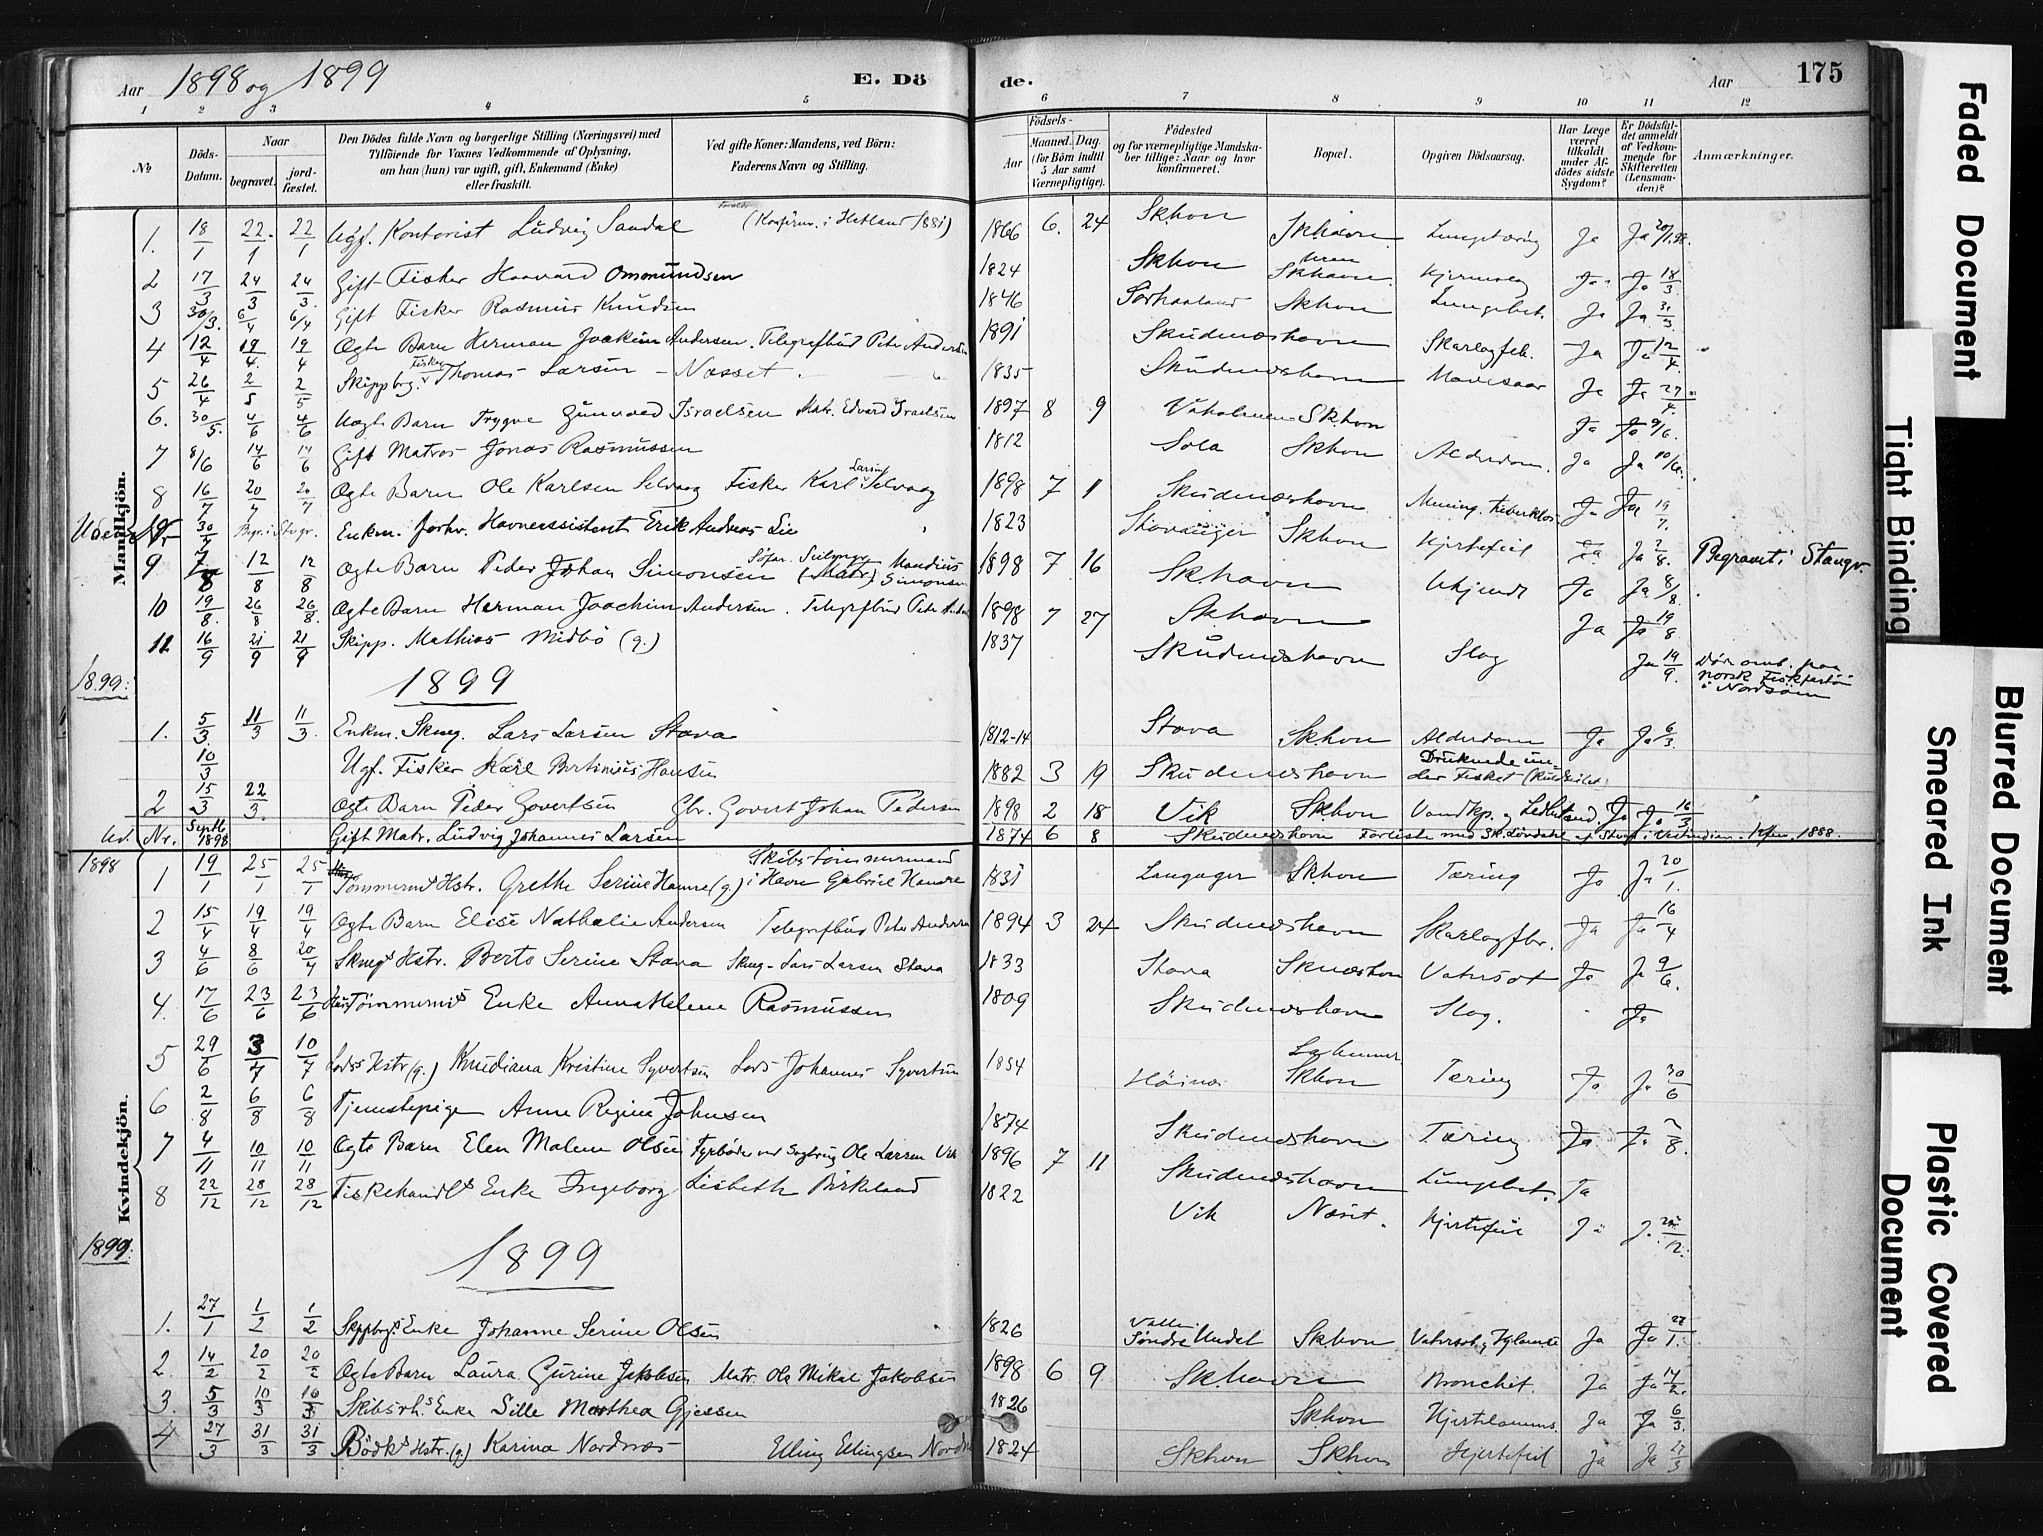 Aar 1898 og 1899 E. Dö de. Aar 175
1 2 3 4 5 6 7 8 9 10 11 12
No Döds-Datum. Naar begravet. jord-fæstet. Den Dödes fulde Navn og borgerlige Stilling (Næringsvei) med Tilföiende for Voxnes Vedkommende af Oplysning, om han (hun) var ugift, gift, Enkemand (Enke) eller fraskilt. Ved gifte Koner: Mandens, ved Börn: Faderens Navn og Stilling. Födsels- Aar Maaned. Dag. (for Börn indtil 5 Aar samt Værnepligtige). Födested og for værnepligtige Mandskaber tillige: Naar og hvor konfirmeret. Bopæl. Opgiven Dödsaarsag. Har Læge været tilkaldt under Afdödes sidste Sygdom? Er Dödsfaldet anmeldt af Vedkommende for Skifteretten (Lensmanden)? Anmærkninger.
Mandkjön.
1. 18/1 22/1 22/1 Ugf. Kontorist Ludvig Sandal (Konfirm. i Hetland 1881) 1866 6. 24 Skhvn Skhavn Lungetæring Ja Ja 20/1.98.
2 17/3 24/3 24/3 Gift Fisker Haavard Ommundsen 1824 Skhvn Skhavn Ja Ja 18/3
3 30/3. 6/4 6/4 Gift Fisker Rasmus Knudsen 1846 Sørhaaland Skhvn Lungebet. Ja Ja 31/3
4 12/4 19/4. 19/4 Ægte Barn Herman Joakim Andersen. Telegrafbud Peter Andersen 1891 Skudenæshavn Skarlagfeb. Ja Ja 12/4.
5 26/4 2/5 2/5 Skippbrg. Fisker Thomas Larsen - Næsset. 1835 Skudenæshavn Mavesaar Ja Ja 27/4.
6. 30/5. 4/6 4/6 Uægte Barn Trygve Gunvald Israelsen Matr. Edvard Israelsen 1897 8 9 Vaholmen Skhvn Ja Ja 9/6.
7 8/6 14/6 14/6 Gift Matros Jonas Rasmussen 1812 Sola Skhvn Alderdom. Ja Ja 10/6.
8 16/7 20/7 20/7 Ægte Barn Ole Karlsen Selvaag Fisker Karl Larsen Selvaag 1898 7 1 Skudenæshavn Mening. tuberklos. Ja Ja 19/7.
Uden Nr 30/7 Begr. i Stvgr. Enkm. forhv. Havneassistent Erik Andreas Lie 1823 Stavanger Skhvn Hjertefeil Ja Ja 2/8. Begravet i Stavgr.
9 7/8 12/8 12/8 Ægte Barn Peder Johan Simonsen (Matr.) Mandius Simonsen 1898 7 16 Skhavn Ukjendt Ja Ja 8/8.
10 19/8. 26/8 26/8. Ægte Barn Herman Joachim Andersen. Telegrafbud Peter Anders 1898 7 27 Skhavn Ja Ja 19/8
11. 16/9 21/9 21/9 Skipp. Mathias Midbö (g.) 1837 Skudenæshavn Slag Ja 19/9. Döde omb. paa norsk Fiskfartöi i Nordsöen
1899: 1899
1. 5/3. 11/3 11/3. Enkm. Skmg. Lars Larsen Stava 1812-14 Stava Skhvn Alderdom Ja Ja 6/3.
10/3 Ugf. Fisker Karl Bertinius Hansen 1882 3 19 Skudenæshavn Druknede under Fisket
2 15/3 22/3. Ægte Barn Peder Govertsen Gbr. Govert Johan Pedersen 1898 2 18 Vik Skhvn Ja Ja 16/3
Ud. Nr. Septb 1898 Gift Matr. Ludvig Johannes Larsen 1874 6 8 Skudenæshavn Forliste med Sk. Löndahl 1888.
Kvindekjön.
1898 1 19/1 25/1 25/1 Tømmermds Hstr. Grethe Serine Hanre (g) Skibstömmermand i Havn Gabriel Hanre 1831 Langager Skhvn Tæring Ja Ja 20/1.
2 15/4 19/4 19/4 Ægte Barn Elise Nathalie Andersen Telegrafbud Peter Andersen 1894 3 24 Skudenæshavn Skarlagfbr. Ja Ja 16/4
3 4/6 8/6 20/4 Skmgs Hstr. Berta Serine Stava Skmg. Lars Larsen Stava 1833 Stava Skudneshvn Vatersot Ja Ja 9/6.
4. 17/6 23/6 23/6 Tømmermds Enke Anna Helene Rasmussen 1809 Skudenæshavn Slag. Ja
5 29/6 3/7 10/7 Lods Hstr (g.) Knudiana Kristine Syvertsen Lods Johannes Syvertsen 1854 Höines Skhvn Tæring Ja Ja 30/6
6 2/8 6/8 6/8 Tjenestepige Anne Regine Johnsen 1874 Skudenæshavn Tæring Ja Ja 2/8.
7 4/11 10/11 10/11 Ægte Barn Elen Malene Olsen Fyrböder Ole Larsen Vik 1896 7 11 Skudenæshavn Lungebet. Ja
8 22/12 28/12 28/12 Fiskehandls Enke Ingeborg Lisbeth Birkeland 1822 Vik Næsset. Hjertefeil Ja Ja /12.
1899: 1899
1. 27/1 1/2 1/2 Skppbrgs Enke Johanne Serine Olsen 1826 Skhvn Ja Ja 27/1.
2. 14/2 20/2 20/2 Ægte Barn Laura Gurine Jakobsen Matr. Ole Mikal Jakobsen 1898 6 9 Skhavn Bronchit. Ja Ja 14/2.
3. 5/3 10/3 10/3 Skibsrh.s Enke Sille Marthea Gjessen 1826 Skhvn Hjertelamms. Ja Ja 6/3.
4 27/3 31/3 31/3 Bödks Hstr. (g) Karina Nordnæs Elling Ellingsen Nordnæs 1824 Skhvn Skhvn Hjertefeil Ja Ja 27/3
Faded Document
Tight Binding
Blurred Document
Smeared Ink
Plastic Covered Document